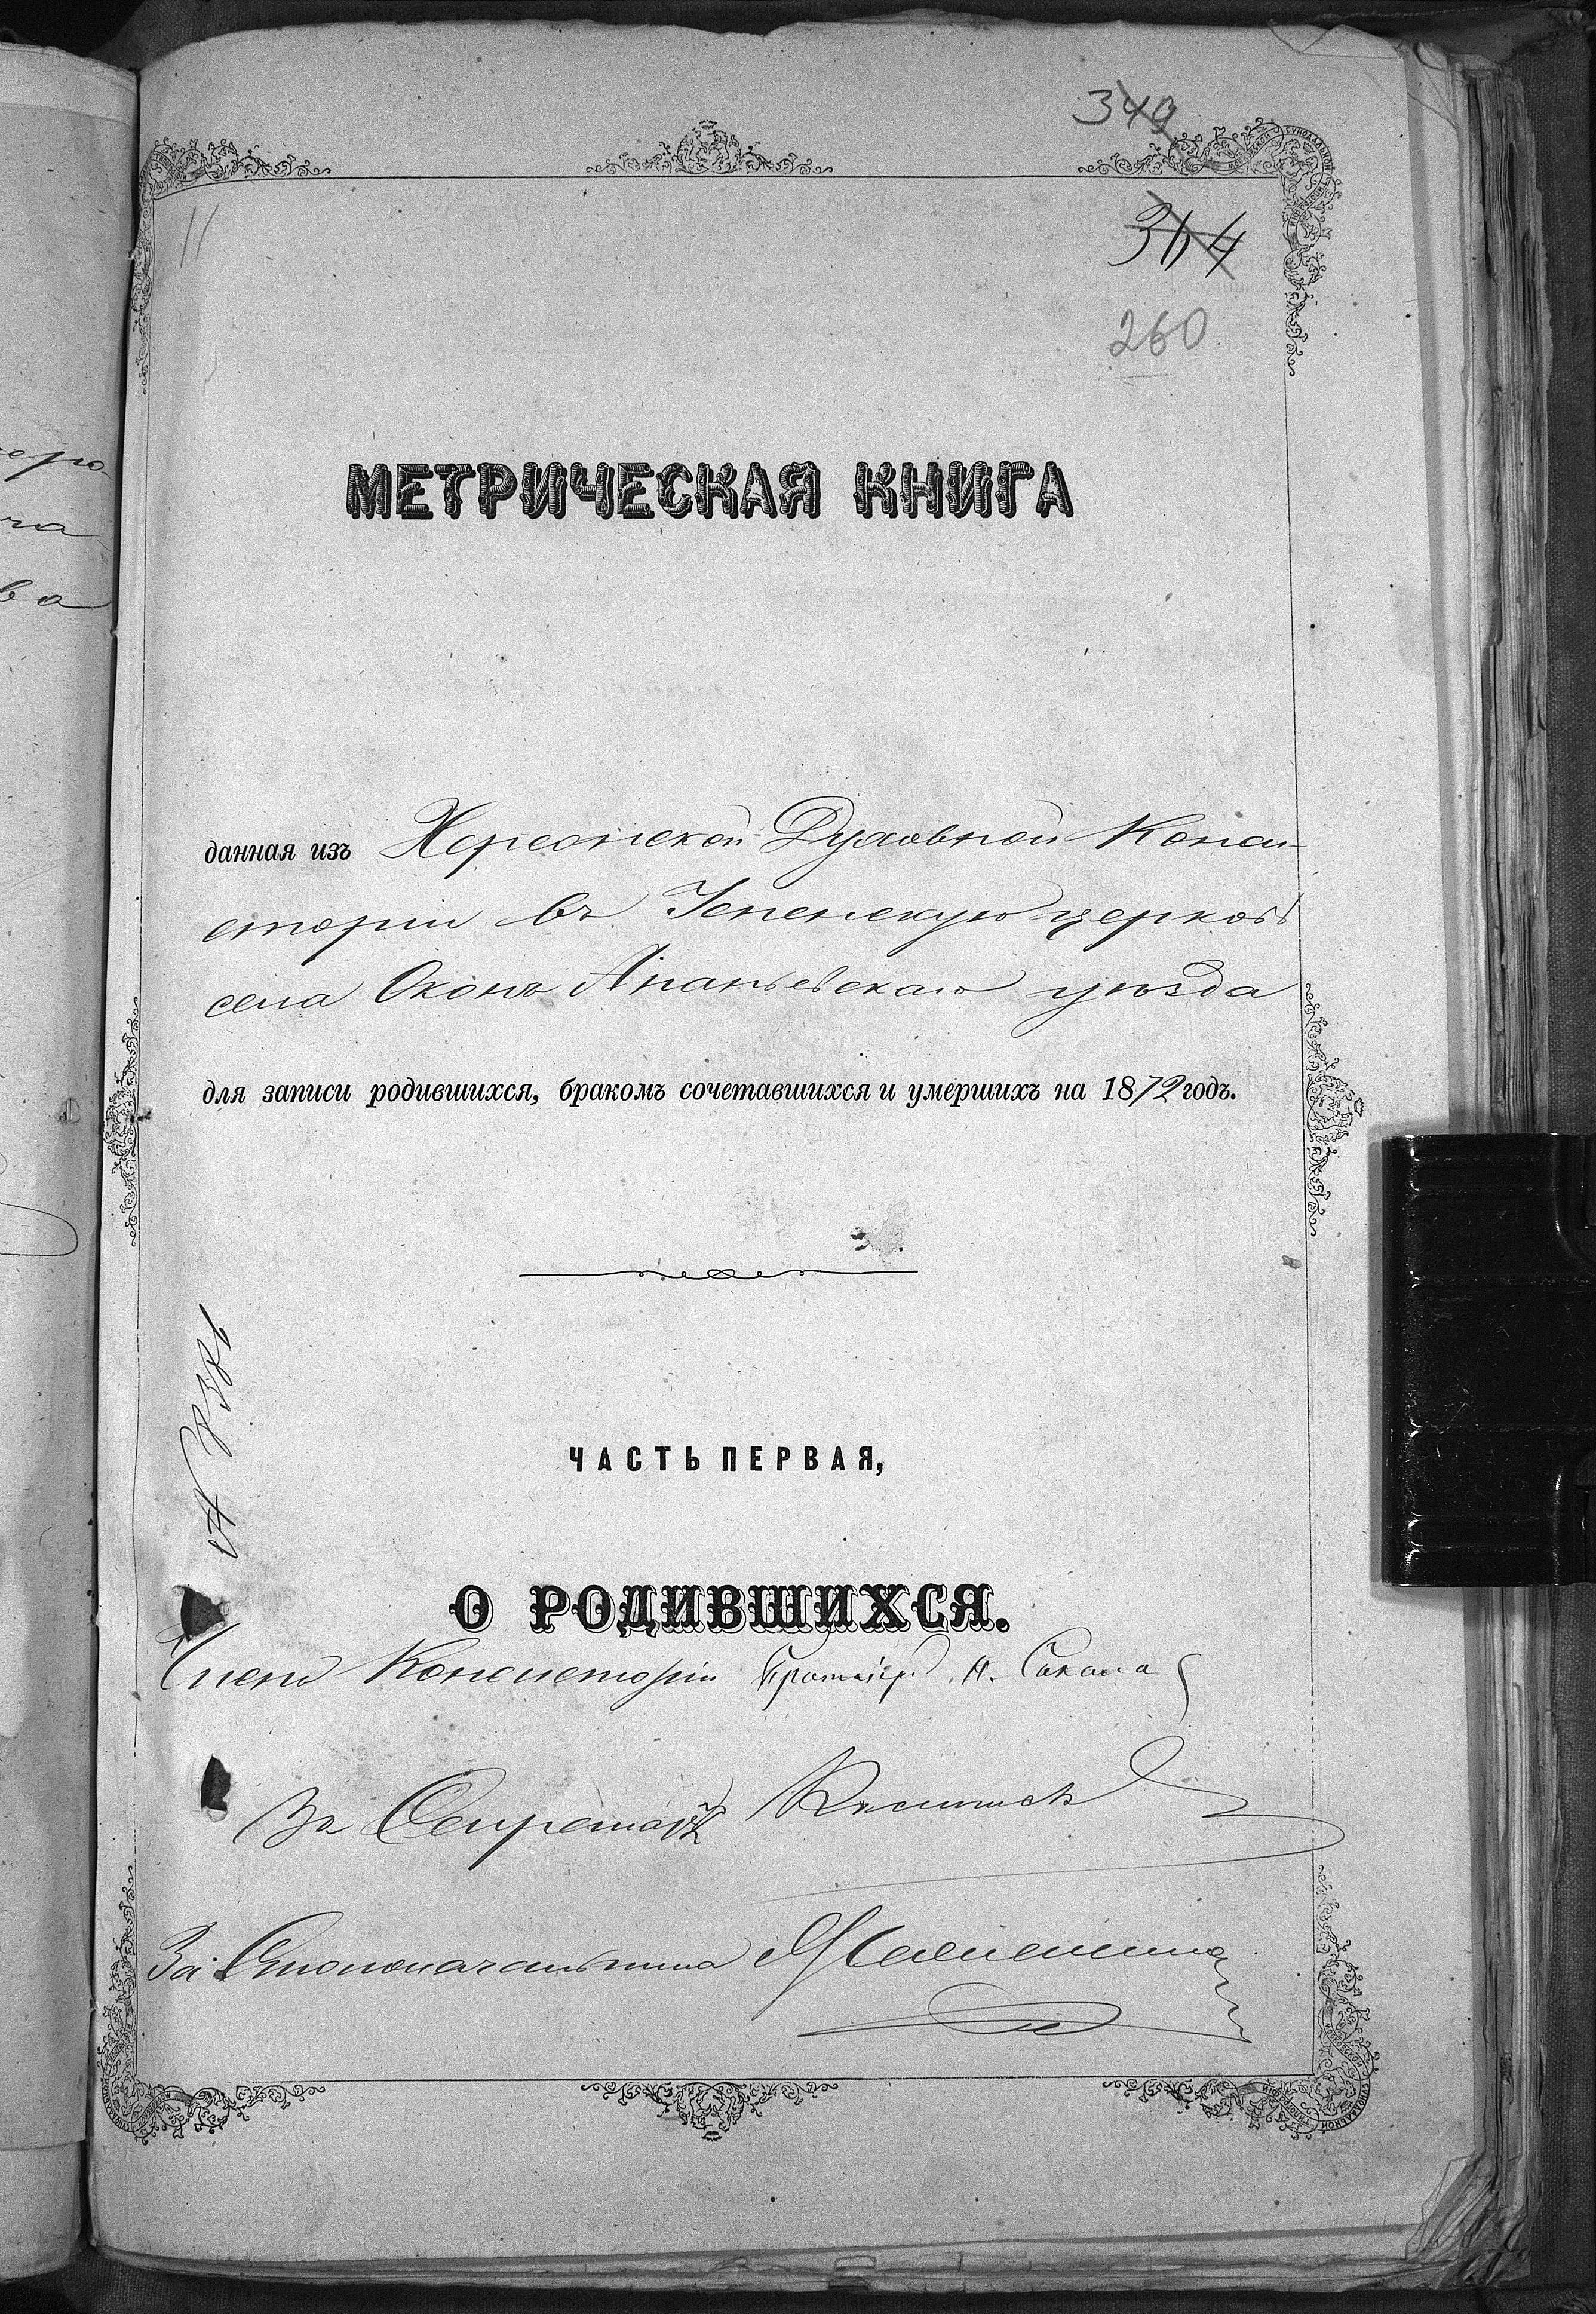 349
364
11
260
МЕТРИЧЕСКАЯ КНИГА
данная изъ Херсонской Духовной Конси-
сторіи въ Успенскую церковь
села Оконъ Ананьевскаго уѣзда
для записи родившихся, бракомъ сочетавшихся и умершихъ на 1872 годъ.
ЧАСТЬ ПЕРВАЯ,
О РОДИВШИХСЯ.
Членъ Консисторіи Протоіер. А.
За Секретаря
За Столоначальника